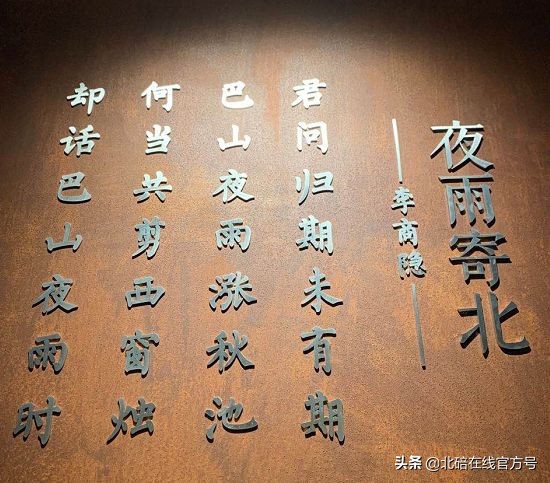 夜雨寄北
李商隐
君问归期未有期
巴山夜雨涨秋池
何当共剪西窗烛
却话巴山夜雨时
头条 @北碚在线官方号